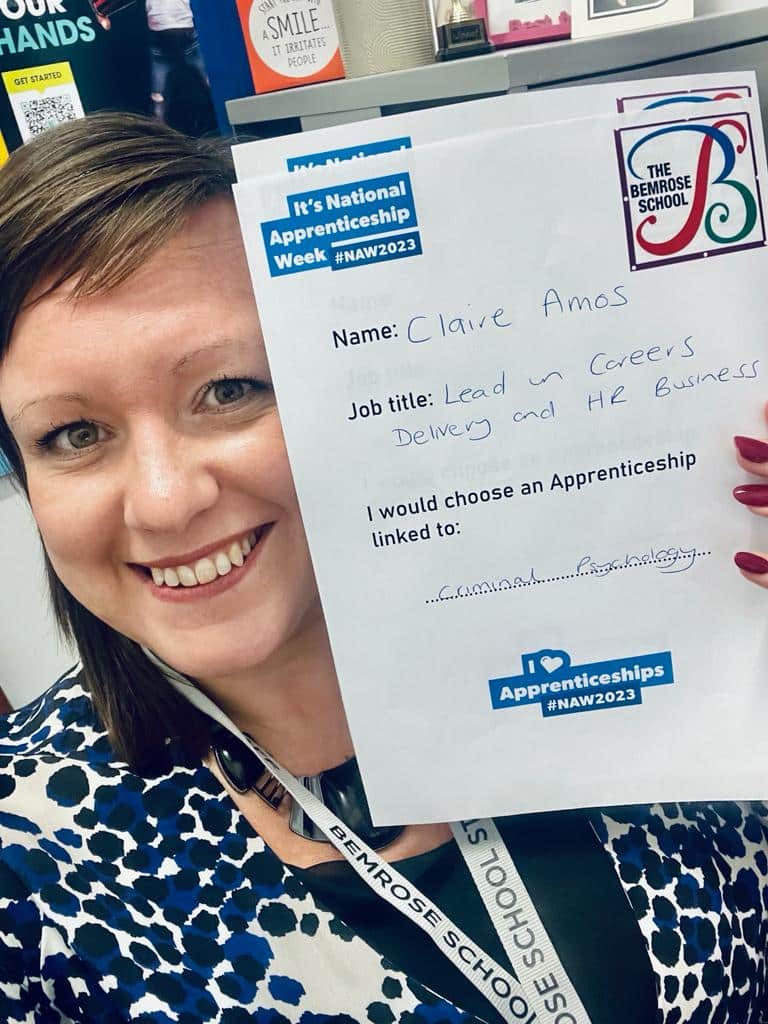 OUR
HANDS
GET STARTED
START THE DAY WITH
A SMILE...
IT IRRITATES
PEOPLE
It's National
It's National
Apprenticeship
Week #NAW2023
THE
BEMROSE
SCHOOL
Name: Claire Amos
Job title: Lead in Careers
Delivery and HR Business
I would choose an Apprenticeship
linked to:
Criminal Psychology
I
Apprenticeships
#NAW2023
BEMROSE SCHOOL
OSE SCHOOL ST